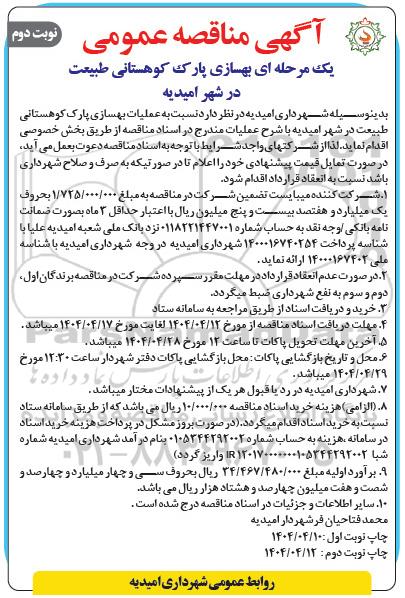 نوبت دوم
آگهی مناقصه عمومی
یک مرحله ای بهسازی پارک کوهستانی طبیعت
در شهر امیدیه
بدینوسیله شهرداری امیدیه در نظر دارد نسبت به عملیات بهسازی پارک کوهستانی
طبیعت در شهر امیدیه با شرح عملیات مندرج در اسناد مناقصه از طریق بخش خصوصی
اقدام نماید. لذا از شرکتهای واجد شرایط با توجه به اسناد مناقصه دعوت بعمل می آید،
در صورت تمایل قیمت پیشنهادی خود را اعلام تا در صورتیکه به صرف و صلاح شهرداری
باشد نسبت به انعقاد قرارداد اقدام شود.
۱.شرکت کننده میبایست تضمین شرکت در مناقصه به مبلغ ۱/۷۲۵/۰۰۰/۰۰۰ بحروف
یک میلیارد و هفتصد بیست و پنج میلیون ریال با اعتبار حداقل ۳ ماه بصورت ضمانت
نامه بانکی/وجه نقد به حساب شماره ۰۱۱۸۲۲۱۴۴۷۰۰۱ نزد بانک ملی شعبه امیدیه علیا با
شناسه پرداخت ۱۴۰۰۰۱۶۷۴۰۲۵۴ شهرداری امیدیه در وجه شهرداری امیدیه با شناسه
ملی ۱۴۰۰۰۱۶۷۴۰۲ ارائه نماید.
۲.در صورت عدم انعقاد قرارداد در مهلت مقرر سپرده شرکت در مناقصه برندگان اول،
دوم و سوم به نفع شهرداری ضبط میگردد.
۳.خرید و دریافت اسناد از طریق مراجعه به سامانه ستاد
۴.مهلت دریافت اسناد مناقصه از مورخ ۱۴۰۴/۰۴/۱۲ لغایت مورخ ۱۴۰۴/۰۴/۱۷ میباشد.
۵.آخرین مهلت تحویل پاکات تا ساعت ۱۲ مورخ ۱۴۰۴/۰۴/۲۸ میباشد.
۶.محل و تاریخ بازگشایی پاکات: محل بازگشایی پاکات دفتر شهردار ساعت ۱۲:۳۰ مورخ
۱۴۰۴/۰۴/۲۹ میباشد.
۷.شهرداری امیدیه در رد یا قبول هر یک از پیشنهادات مختار میباشد.
۸.(الزامی) هزینه خرید اسناد مناقصه ۱۰/۰۰۰/۰۰۰ ریال می باشد که از طریق سامانه ستاد
نسبت به خرید اسناد اقدام میگردد.(در صورت بروز مشکل در پرداخت هزینه خرید اسناد
در سامانه ،هزینه به حساب شماره ۰۱۰۵۳۴۴۲۹۲۰۰۲ بنام درآمد شهرداری امیدیه شماره
شبا IR۱۲۰۱۷۰۰۰۰۰۰۰۱۰۵۳۴۴۲۹۲۰۰۲ واریز گردد)
۹. برآورد اولیه مبلغ ۳۴/۴۶۷/۴۸۰/۰۰۰ ریال بحروف سی و چهار میلیارد و چهارصد و
شصت و هفت میلیون چهارصد و هشتاد هزار ریال می باشد.
۱۰.سایر اطلاعات و جزئیات در اسناد مناقصه درج شده است.
محمد فتاحیان فر شهردار امیدیه
چاپ نوبت اول: ۱۴۰۴/۰۴/۱۰
چاپ نوبت دوم: ۱۴۰۴/۰۴/۱۲
روابط عمومی شهرداری امیدیه